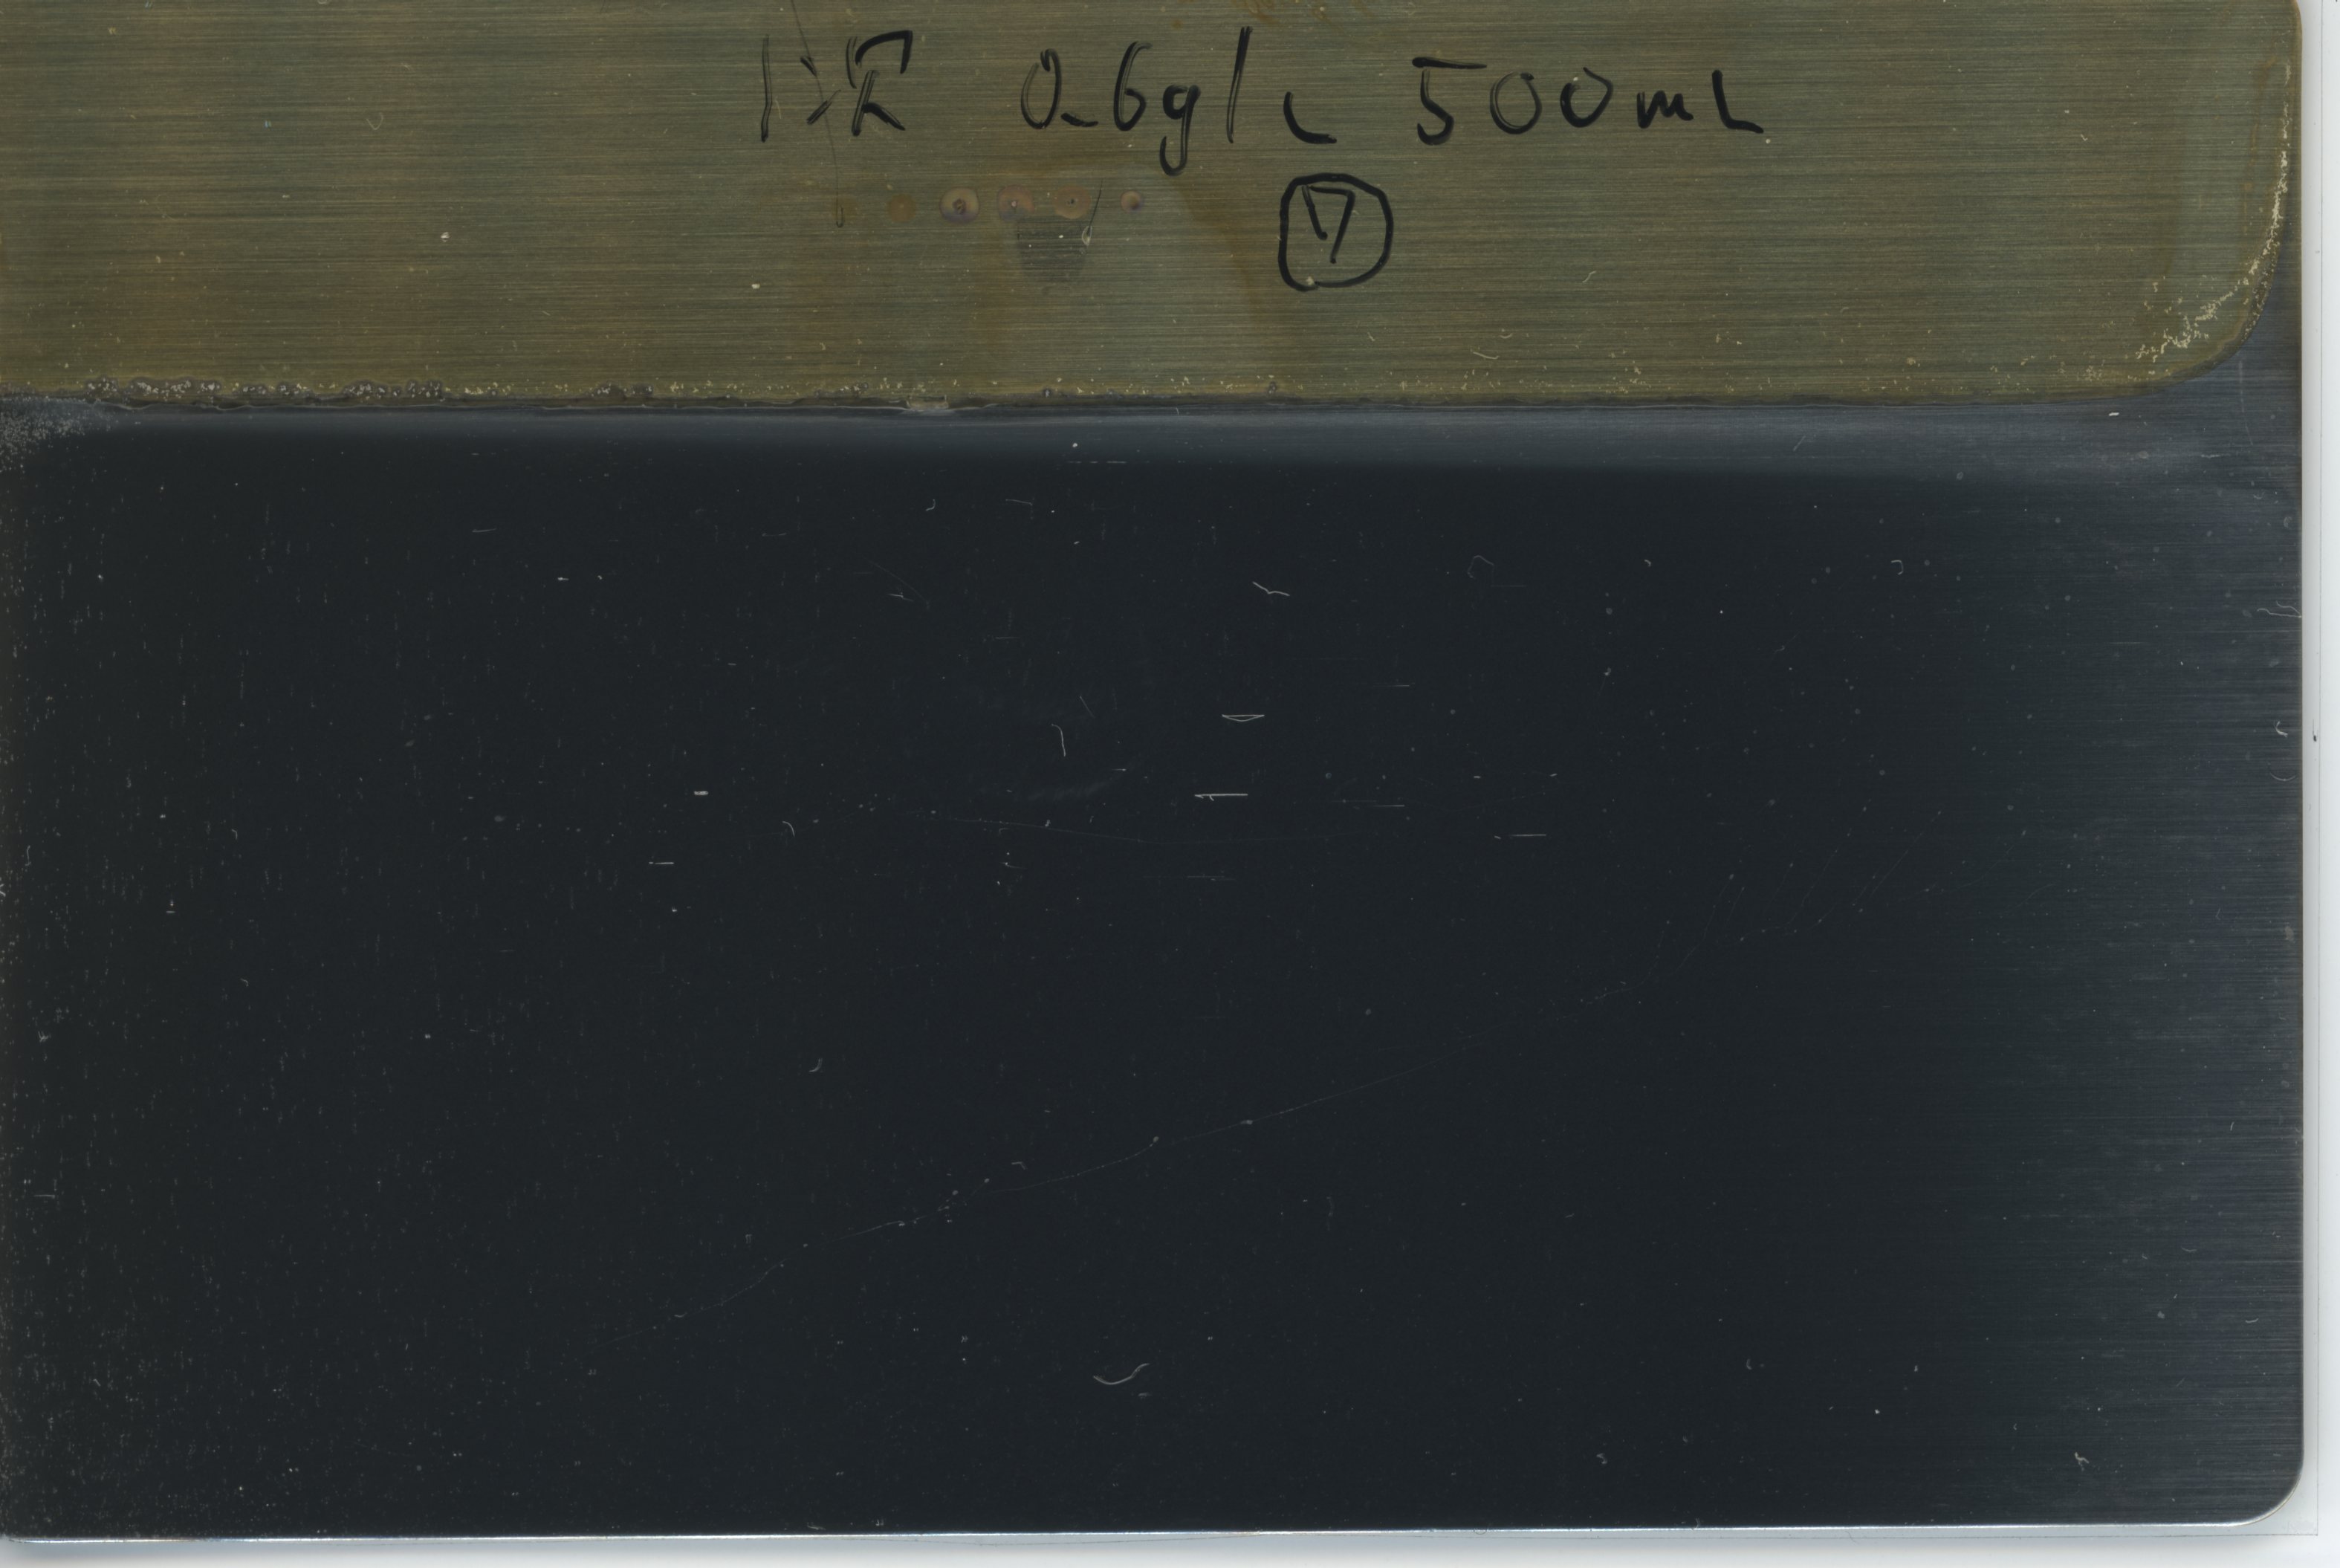 1次 0.6g/L 500mL
⑦